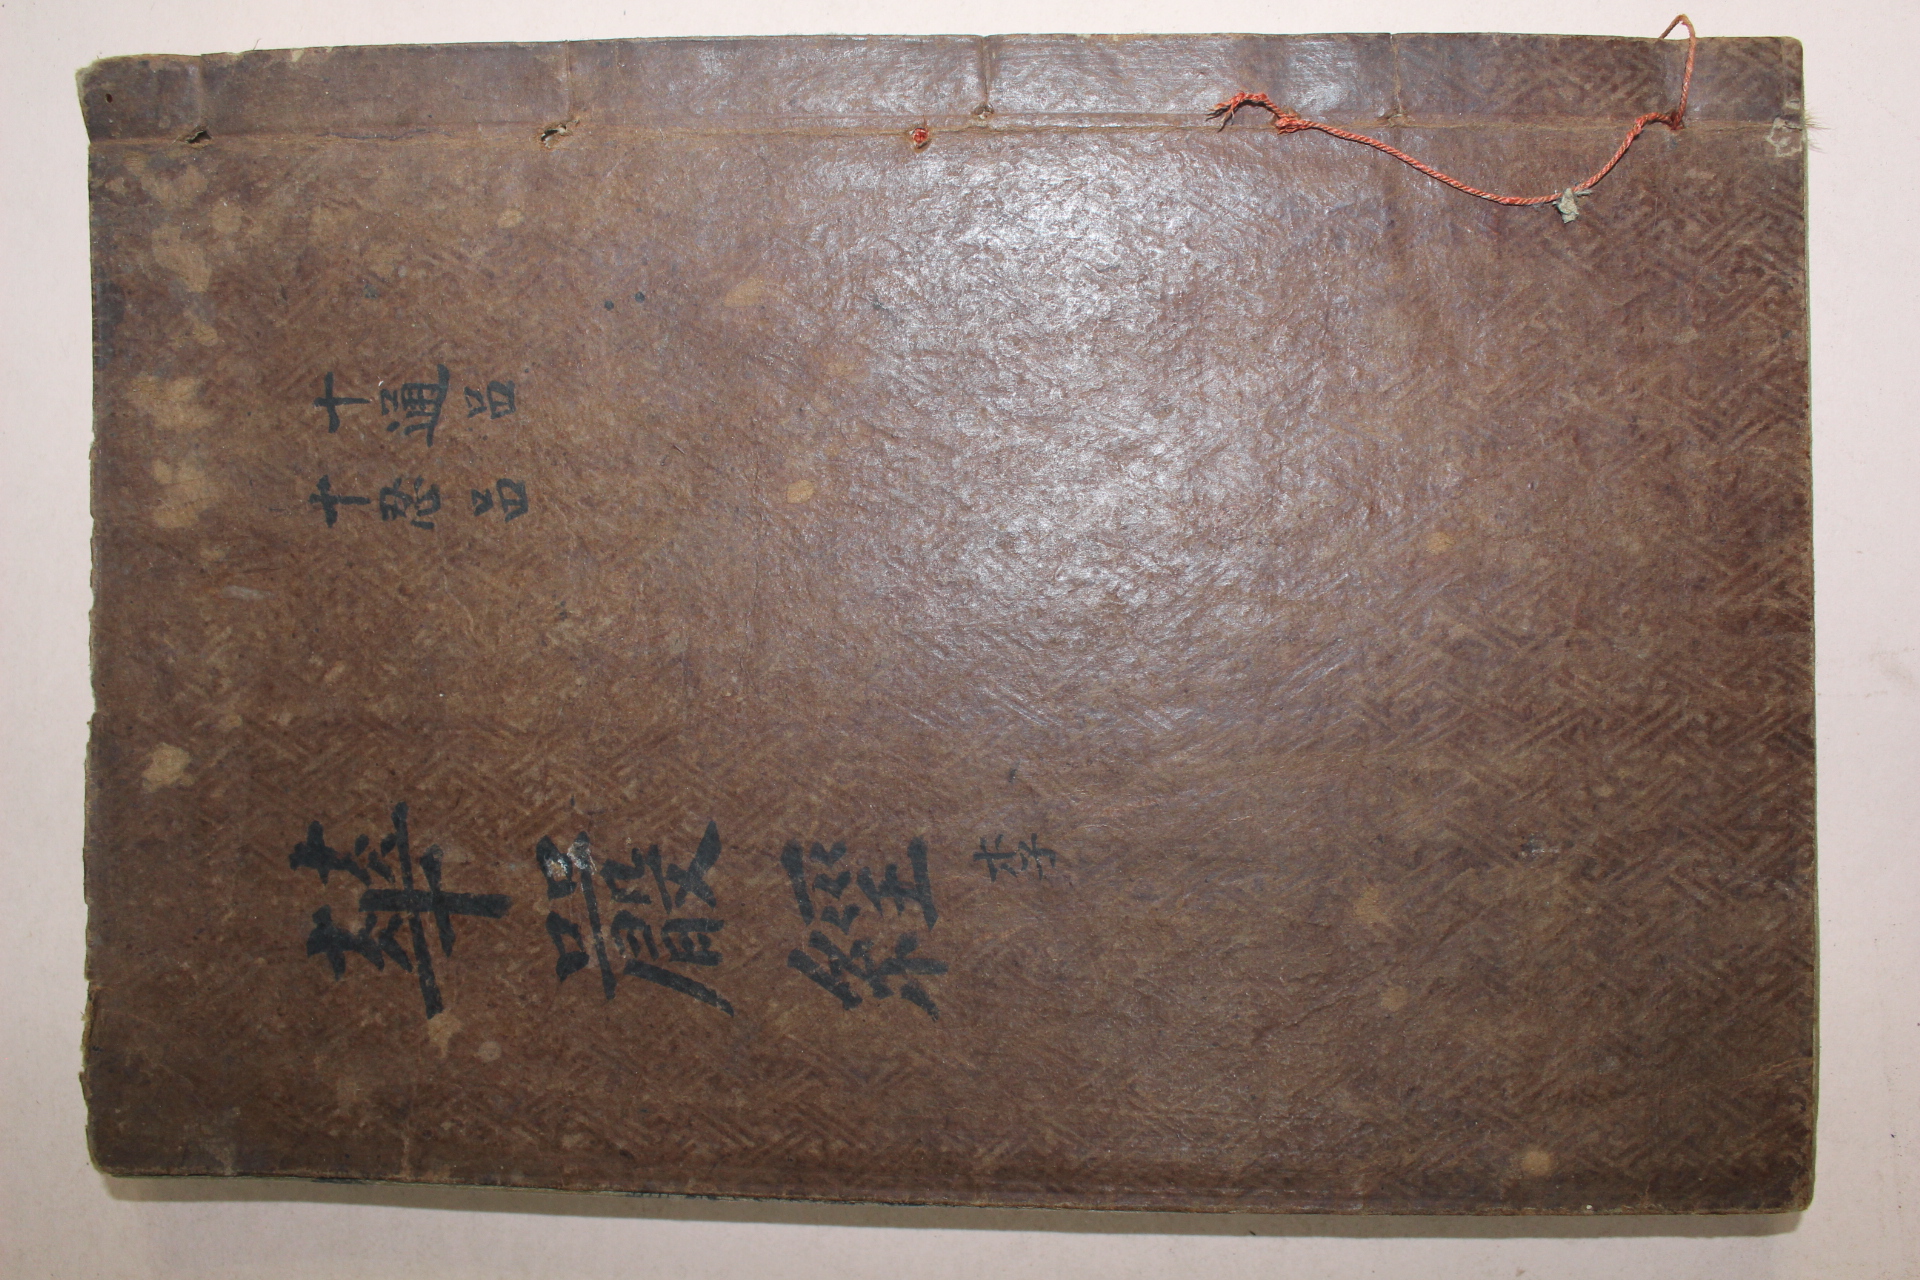 十通品
十忍品
華嚴經 李